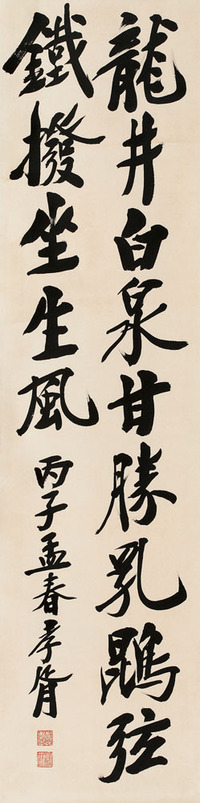 龍井白泉甘勝乳鵾弦
鐵撥坐生風
丙子孟春孝胥